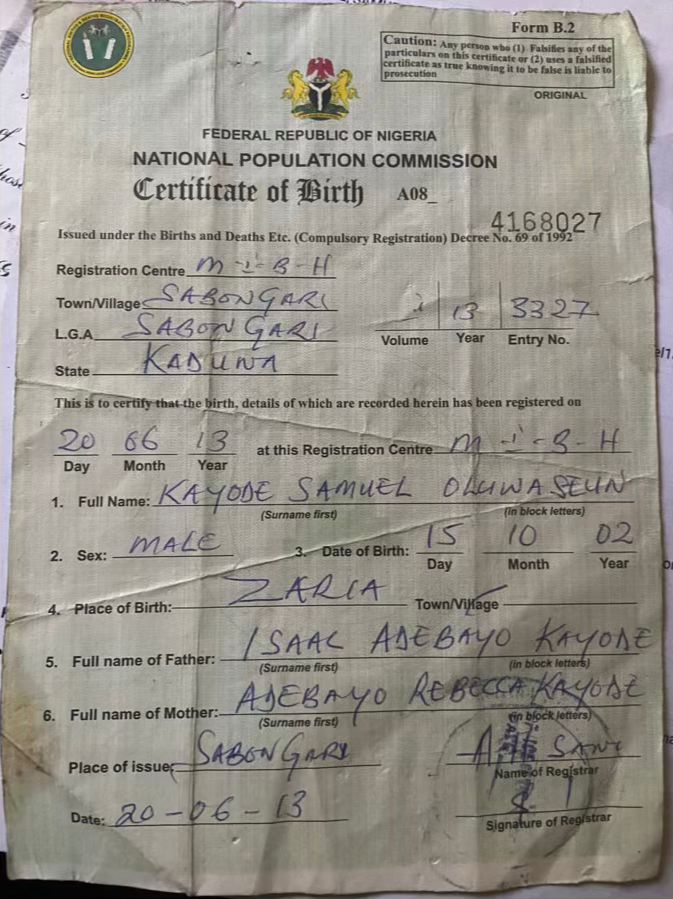 Form B.2
Caution: Any person who (1) Falsifies any of the
particulars on this certificate or (2) uses a falsified
certificate as true knowing it to be false is liable to
prosecution
ORIGINAL
FEDERAL REPUBLIC OF NIGERIA
NATIONAL POPULATION COMMISSION
Certificate of Birth A08_
4168027
Issued under the Births and Deaths Etc. (Compulsory Registration) Decree No. 69 of 1992
Registration Centre M-I-B-H
Town/Village SABON GARI
L.G.A SABON GARI
State KADUNA
13 3327
Volume Year Entry No.
This is to certify that the birth, details of which are recorded herein has been registered on
20 06 13 at this Registration Centre M-I-B-H
Day Month Year
1. Full Name: KAYODE SAMUEL OLUWASEUN
(Surname first) (in block letters)
2. Sex: MALE 3. Date of Birth: 15 10 02
Day Month Year
4. Place of Birth: ZARIA Town/Village
5. Full name of Father: ISAAC ADEBAYO KAYODE
(Surname first) (in block letters)
6. Full name of Mother: ADEBAYO REBECCA KAYODE
(Surname first) (in block letters)
Place of issue SABON GARI
SANI
Name of Registrar
Date: 20-06-13
Signature of Registrar